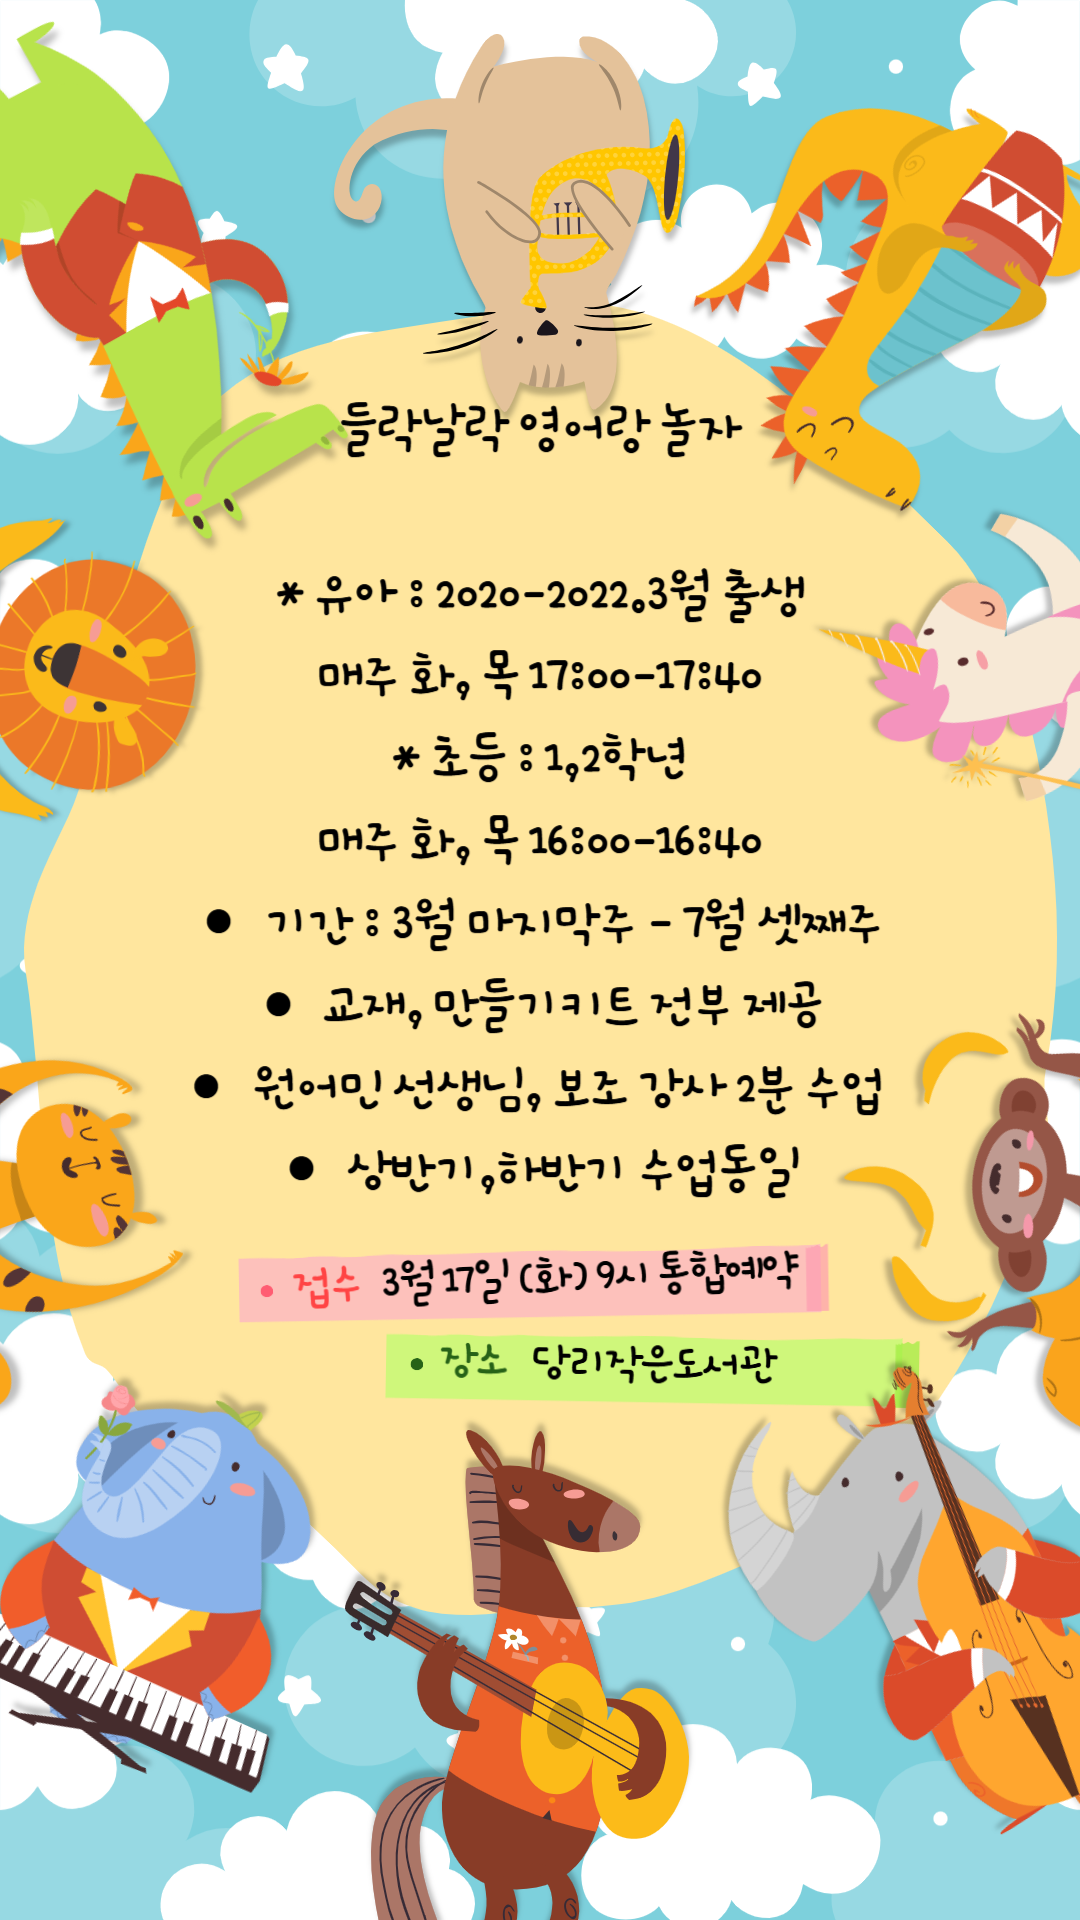 들락날락 영어랑 놀자
* 유아 : 2020-2022.3월 출생
매주 화, 목 17:00-17:40
* 초등 : 1,2학년
매주 화, 목 16:00-16:40
● 기간 : 3월 마지막주 - 7월 셋째주
● 교재, 만들기키트 전부 제공
● 원어민 선생님, 보조 강사 2분 수업
● 상반기,하반기 수업동일
• 접수 3월 17일 (화) 9시 통합예약
• 장소 당리작은도서관